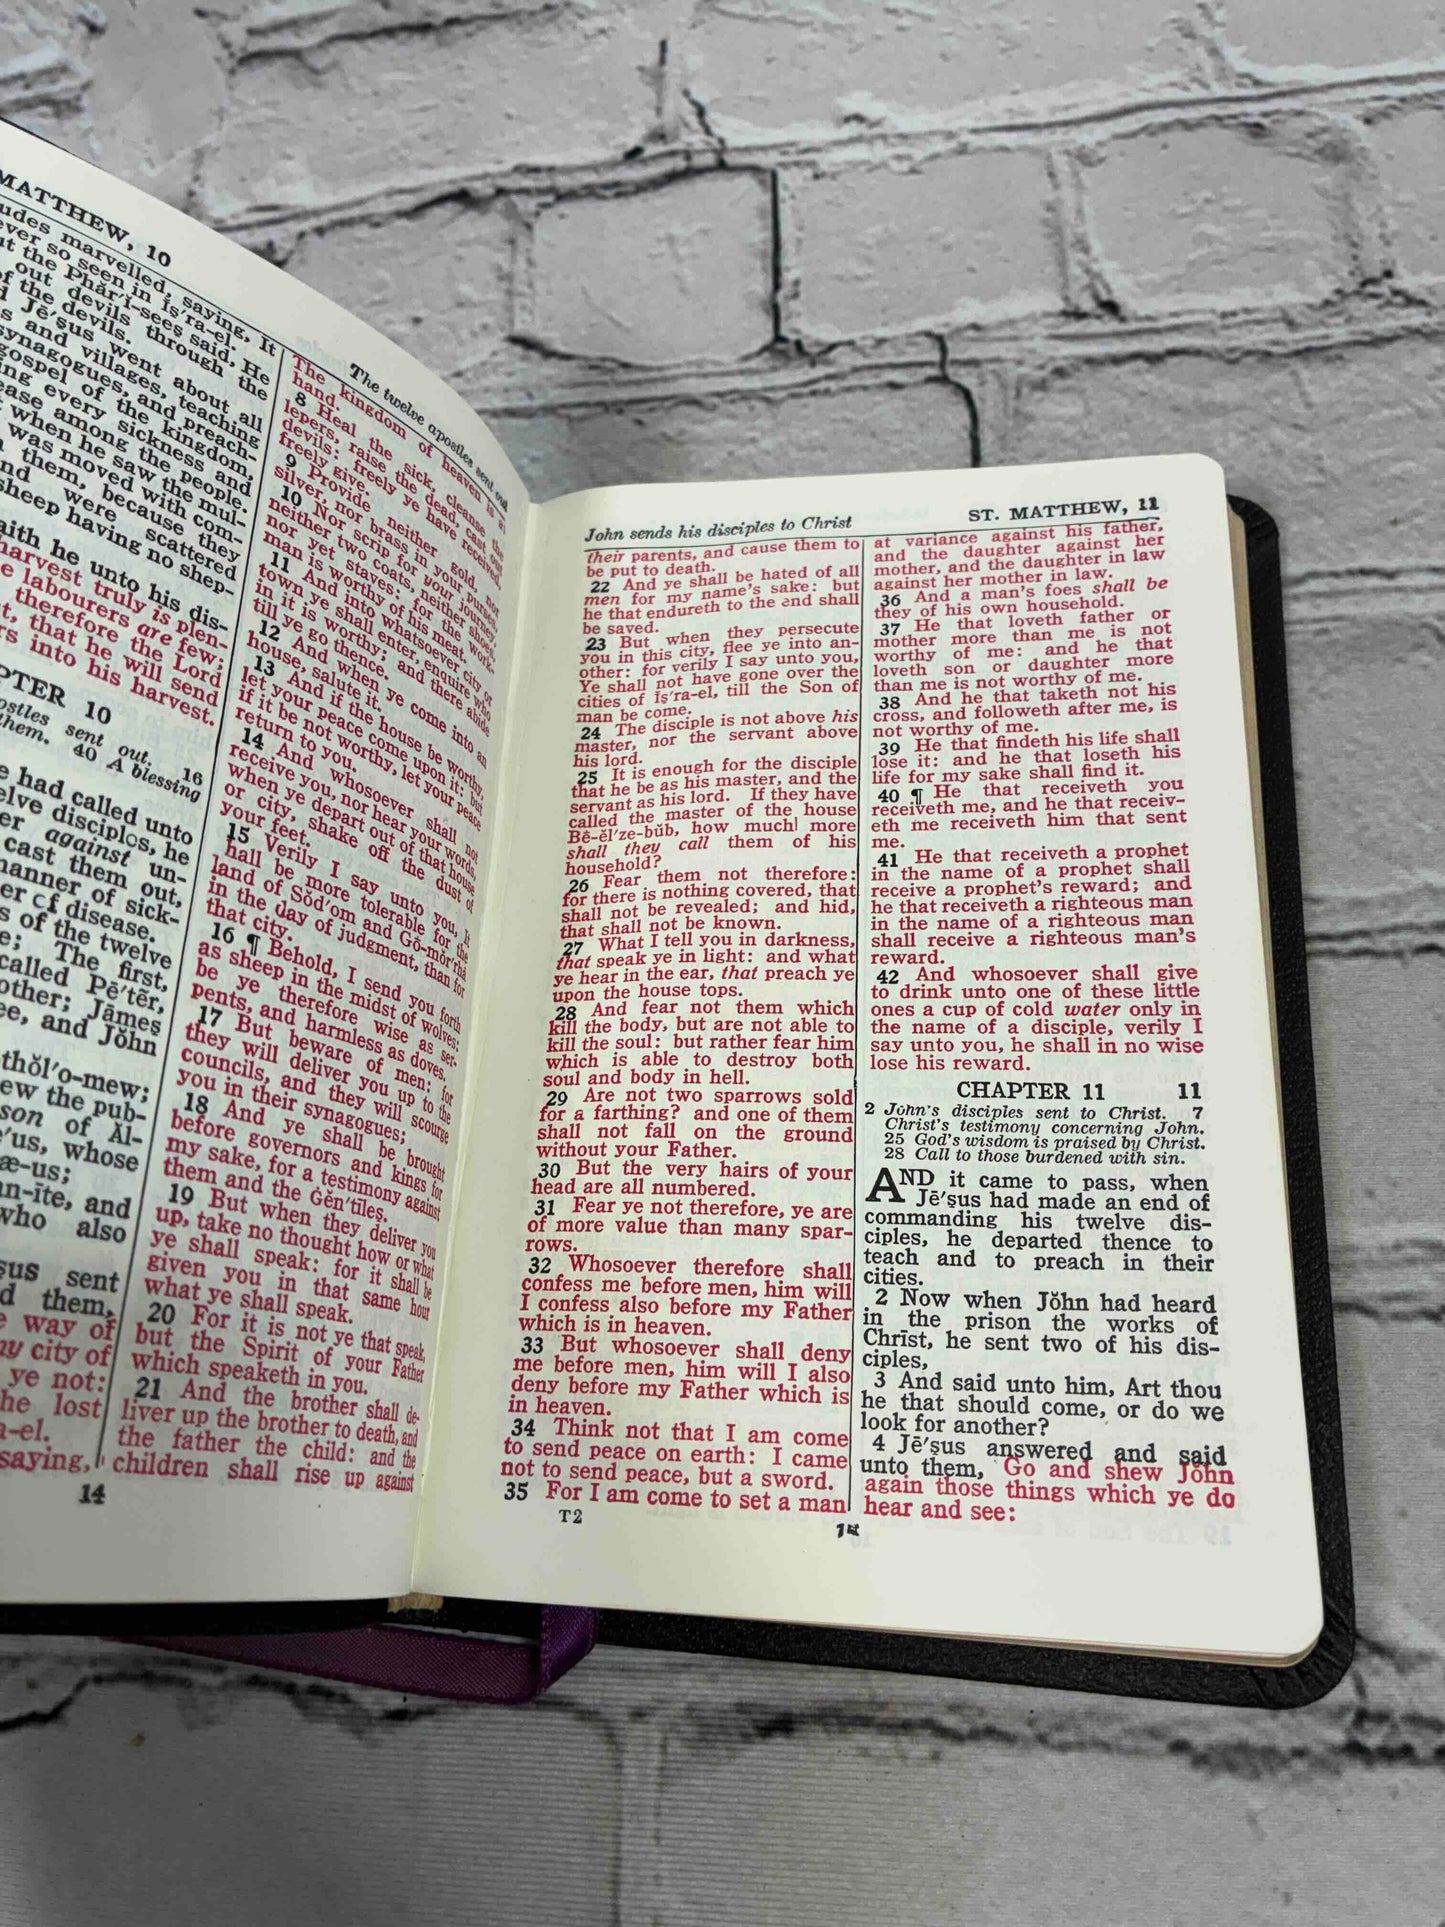 MATTHEW, 10
udes marvelled, saying, It
ever so seen in Ĭs̩'ra-el.
ut the Phăr'ĭ-sees said, He
out devils through the
f the devils.
Jē's̩us went about all
s and villages, teaching
synagogues, and preach-
gospel of the kingdom,
ing every sickness and
ease among the people.
when he saw the mul-
was moved with com-
them, because they
nd were scattered
sheep having no shep-
aith he unto his dis-
harvest truly is plen-
e labourers are few;
therefore the Lord
t, that he will send
rs into his harvest.
PTER 10
ostles sent out. 16
them. 40 A blessing
e had called unto
elve disciples, he
er against un-
cast them out,
manner of sick-
er of disease.
s of the twelve
e; The first,
called Pē'tēr,
other; Jāmes̩
ee, and Jŏhn
thŏl'o-mew;
ew the pub-
son of Ăl-
'us, whose
æ-us;
an-īte, and
who also
sus sent
d them,
e way of
ny city of
ye not:
he lost
a-el.
saying,
14
The twelve apostles sent out
The kingdom of heaven is at
hand.
8 Heal the sick, cleanse the
lepers, raise the dead, cast out
devils: freely ye have received,
freely give.
9 Provide neither gold, nor
silver, nor brass in your purses,
10 Nor scrip for your journey,
neither two coats, neither shoes,
nor yet staves: for the work-
man is worthy of his meat.
11 And into whatsoever city or
town ye shall enter, enquire who
in it is worthy; and there abide
till ye go thence.
12 And when ye come into an
house, salute it.
13 And if the house be worthy,
let your peace come upon it: but
if it be not worthy, let your peace
return to you.
14 And whosoever shall not
receive you, nor hear your words,
when ye depart out of that house
or city, shake off the dust of
your feet.
15 Verily I say unto you, It
hall be more tolerable for the
land of Sŏd'om and Gŏ-mŏr'rhȧ
in the day of judgment, than for
that city.
16 ¶ Behold, I send you forth
as sheep in the midst of wolves:
be ye therefore wise as ser-
pents, and harmless as doves.
17 But beware of men: for
they will deliver you up to the
councils, and they will scourge
you in their synagogues;
18 And ye shall be brought
before governors and kings for
my sake, for a testimony against
them and the Ġĕn'tīles̩.
19 But when they deliver you
up, take no thought how or what
ye shall speak: for it shall be
given you in that same hour
what ye shall speak.
20 For it is not ye that speak,
but the Spirit of your Father
which speaketh in you.
21 And the brother shall de-
liver up the brother to death, and
the father the child: and the
children shall rise up against
John sends his disciples to Christ
ST. MATTHEW, 11
their parents, and cause them to
be put to death.
22 And ye shall be hated of all
men for my name's sake: but
he that endureth to the end shall
be saved.
23 But when they persecute
you in this city, flee ye into an-
other: for verily I say unto you,
Ye shall not have gone over the
cities of Ĭs̩'ra-el, till the Son of
man be come.
24 The disciple is not above his
master, nor the servant above
his lord.
25 It is enough for the disciple
that he be as his master, and the
servant as his lord. If they have
called the master of the house
Bē-ĕl'ze-bŭb, how much more
shall they call them of his
household?
26 Fear them not therefore:
for there is nothing covered, that
shall not be revealed; and hid,
that shall not be known.
27 What I tell you in darkness,
that speak ye in light: and what
ye hear in the ear, that preach ye
upon the house tops.
28 And fear not them which
kill the body, but are not able to
kill the soul: but rather fear him
which is able to destroy both
soul and body in hell.
29 Are not two sparrows sold
for a farthing? and one of them
shall not fall on the ground
without your Father.
30 But the very hairs of your
head are all numbered.
31 Fear ye not therefore, ye are
of more value than many spar-
rows.
32 Whosoever therefore shall
confess me before men, him will
I confess also before my Father
which is in heaven.
33 But whosoever shall deny
me before men, him will I also
deny before my Father which is
in heaven.
34 Think not that I am come
to send peace on earth: I came
not to send peace, but a sword.
35 For I am come to set a man
T2
at variance against his father,
and the daughter against her
mother, and the daughter in law
against her mother in law.
36 And a man's foes shall be
they of his own household.
37 He that loveth father or
mother more than me is not
worthy of me: and he that
loveth son or daughter more
than me is not worthy of me.
38 And he that taketh not his
cross, and followeth after me, is
not worthy of me.
39 He that findeth his life shall
lose it: and he that loseth his
life for my sake shall find it.
40 ¶ He that receiveth you
receiveth me, and he that receiv-
eth me receiveth him that sent
me.
41 He that receiveth a prophet
in the name of a prophet shall
receive a prophet's reward; and
he that receiveth a righteous man
in the name of a righteous man
shall receive a righteous man's
reward.
42 And whosoever shall give
to drink unto one of these little
ones a cup of cold water only in
the name of a disciple, verily I
say unto you, he shall in no wise
lose his reward.
CHAPTER 11 11
2 John's disciples sent to Christ. 7
Christ's testimony concerning John.
25 God's wisdom is praised by Christ.
28 Call to those burdened with sin.
AND it came to pass, when
Jē's̩us had made an end of
commanding his twelve dis-
ciples, he departed thence to
teach and to preach in their
cities.
2 Now when Jŏhn had heard
in the prison the works of
Chrīst, he sent two of his dis-
ciples,
3 And said unto him, Art thou
he that should come, or do we
look for another?
4 Jē's̩us answered and said
unto them, Go and shew Jŏhn
again those things which ye do
hear and see: